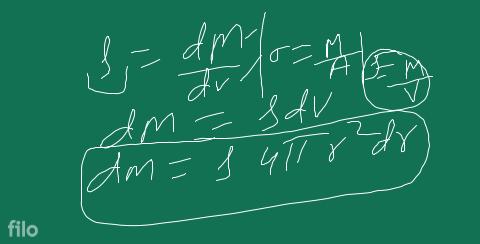 ρ = dM/dV | σ = M/A | ρ = M/V
dM = ρ dV
dM = ρ 4π r² dr
filo